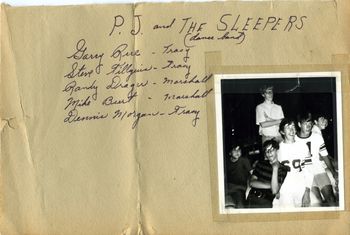 P.J. and THE SLEEPERS
(dance band)
Garry Rue - Tracy
Steve Fillquin - Tracy
Randy Drager - Marshall
Mike Burt - Marshall
Dennis Morgan - Tracy
69 1